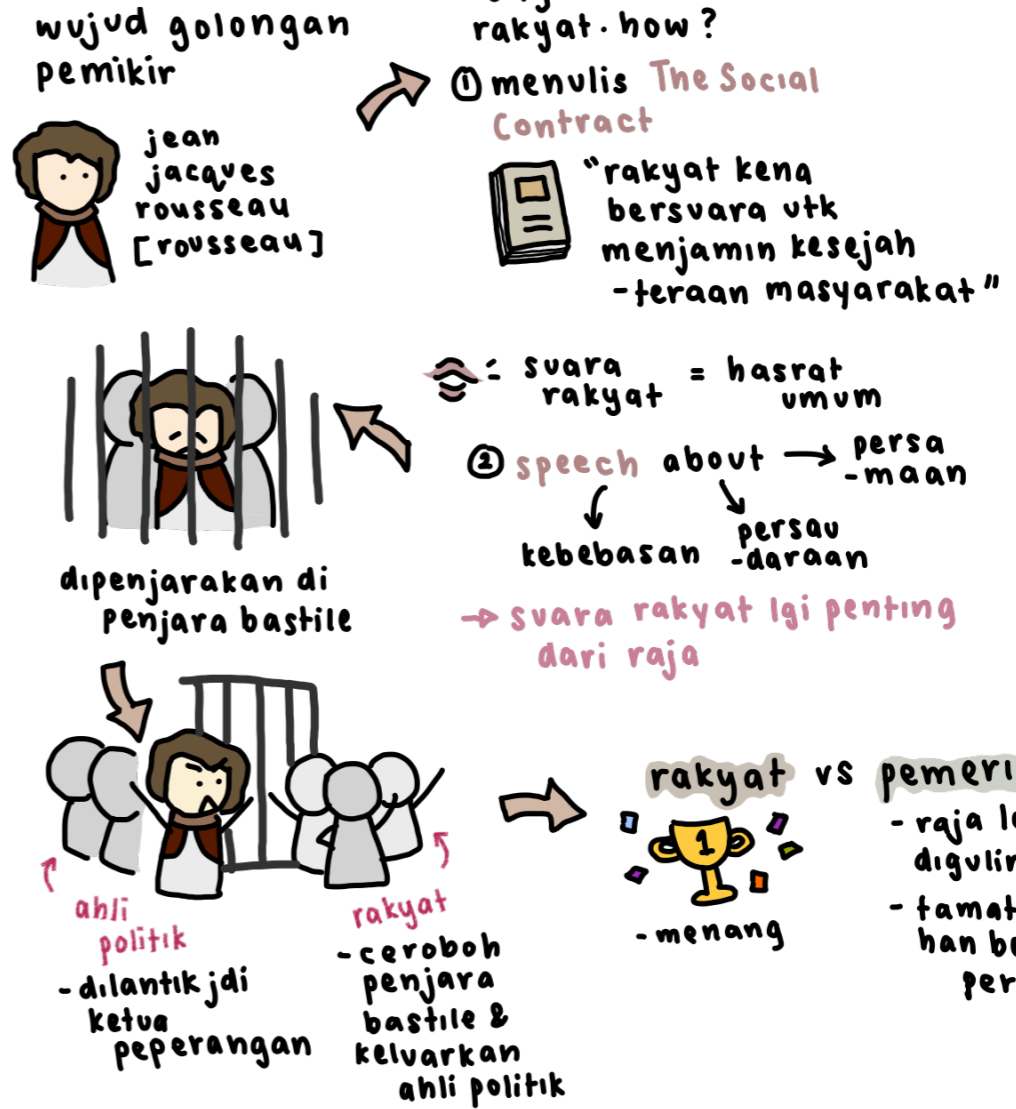 wujud golongan
pemikir
jean
jacques
rousseau
[rousseau]
rakyat. how?
① menulis The Social
Contract
"rakyat kena
bersuara utk
menjamin kesejah
-teraan masyarakat"
: suara
rakyat
= hasrat
umum
② speech about → persa
-maan
kebebasan
persau
-daraan
→ suara rakyat lgi penting
dari raja
dipenjarakan di
penjara bastile
ahli
politik
- dilantik jdi
ketua
peperangan
rakyat
- ceroboh
penjara
bastile &
keluarkan
ahli politik
rakyat vs
1
- menang
- raja
- tamat